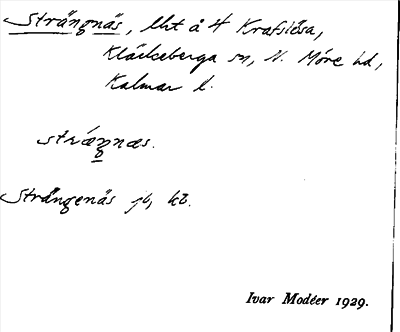 Strängnäs, lht å 4 Krafslösa,
Kläckeberga sn, N. Möre hd,
Kalmar l.
stráŋnæs.
Strängenäs jb, kb.
Ivar Modéer 1929.